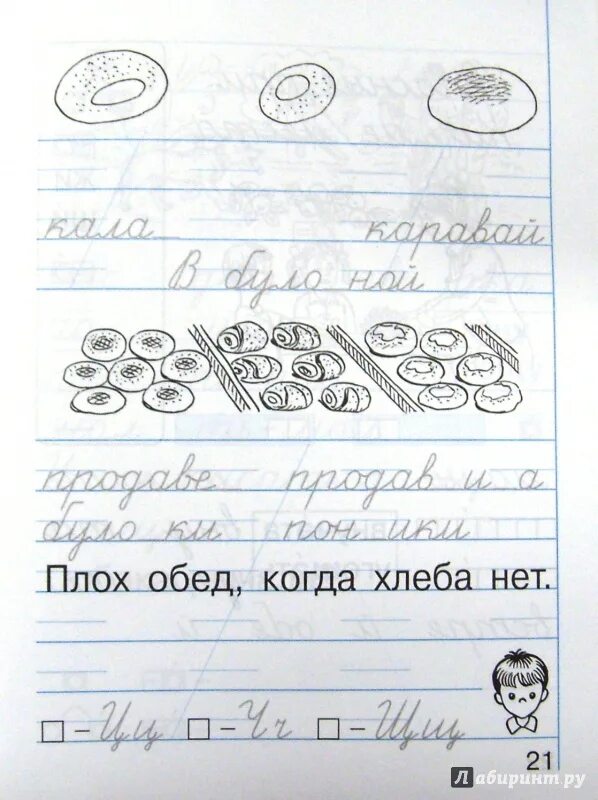 кала каравай
В було ной
продаве продав и а
було ки пон ики
Плох обед, когда хлеба нет.
□ – Цц □ – Чч □ – Щщ
21
Лабиринт.ру